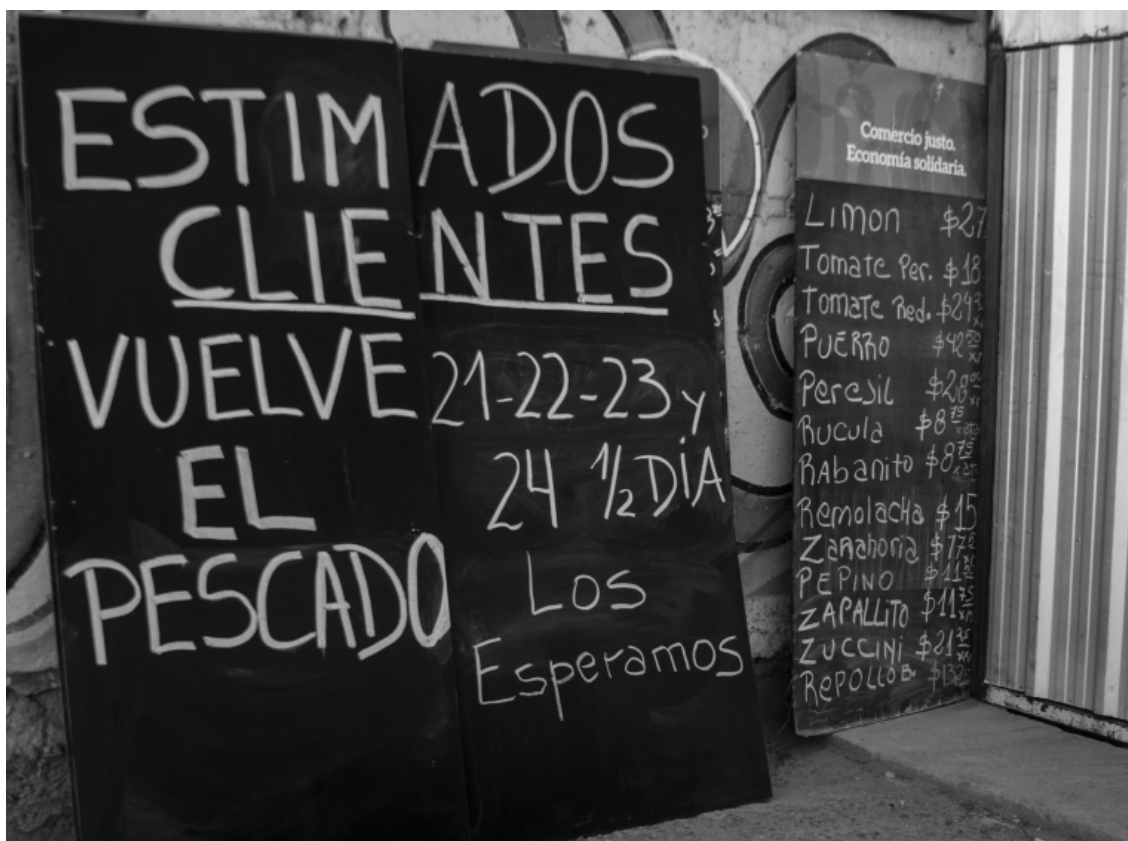 ESTIMADOS
CLIENTES
VUELVE
EL
PESCADO
21-22-23 y
24 1/2 DíA
Los
Esperamos
Comercio justo.
Economía solidaria.
Limon $27
Tomate Per. $18
Tomate Red. $24
PUERRO $42 50
Perejil $28
Rucula $8 75
RAbanito $8 75
Remolacha $15
Zanahoria $17
PEPINO $11
ZAPALLITO $11 75
ZUCCINI $21 75
RePOLLO B.